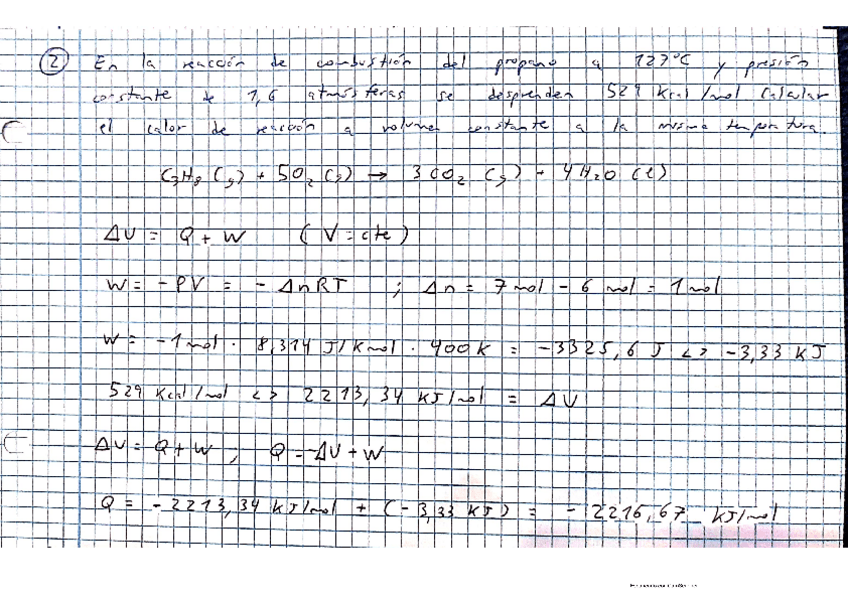 ② En la reacción de combustión del propano a 127ºC y presión
constante de 1,6 atmósferas se desprenden 529 Kcal/mol Calcular
el calor de reacción a volumen constante a la misma temperatura.
C3H8 (g) + 5O2 (g) → 3CO2 (g) + 4H2O (l)
ΔU = Q + W (V = cte)
W = -PV = - ΔnRT ; Δn = 7 mol - 6 mol = 1 mol
W = -1 mol · 8,314 J/K mol · 400 K = -3325,6 J <> -3,33 KJ
529 Kcal/mol <> 2213,34 KJ/mol = ΔU
ΔU = Q + W ; Q = -ΔU + W
Q = -2213,34 KJ/mol + (-3,33 KJ) = -2216,67 KJ/mol